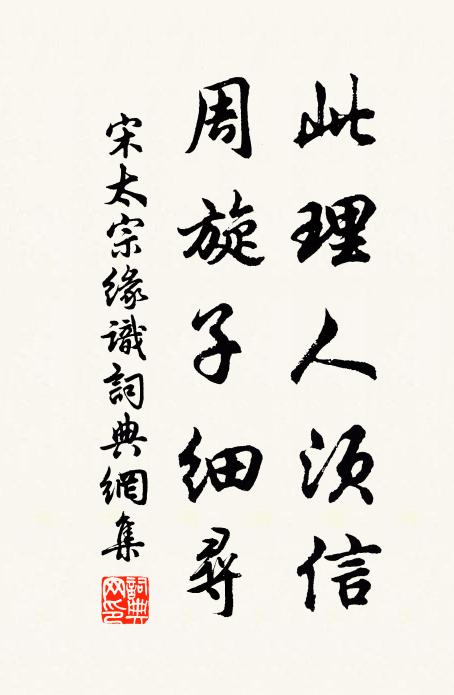 此理人須信
周旋子細尋
宋太宗緣識詞典網集
詞典網印